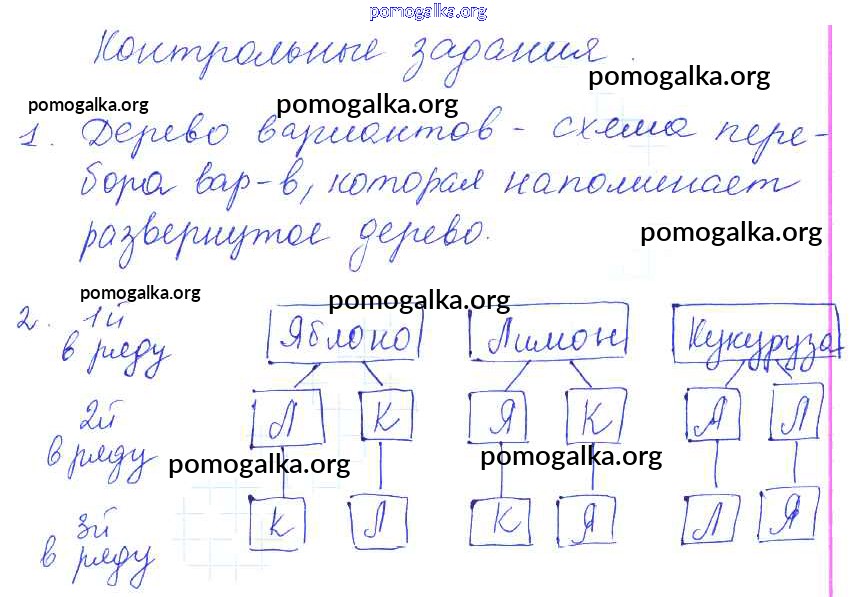 pomogalka.org
Контрольные задания.
pomogalka.org
pomogalka.org pomogalka.org
1. Дерево вариантов - схема пере-
бора вар-в, которая напоминает
развернутое дерево.
pomogalka.org
pomogalka.org pomogalka.org
2. 1й Яблоко Лимон Кукуруза
в ряду
2й Л К Я К Л
в ряду
pomogalka.org pomogalka.org
3й К Л К Я Л Я
в ряду